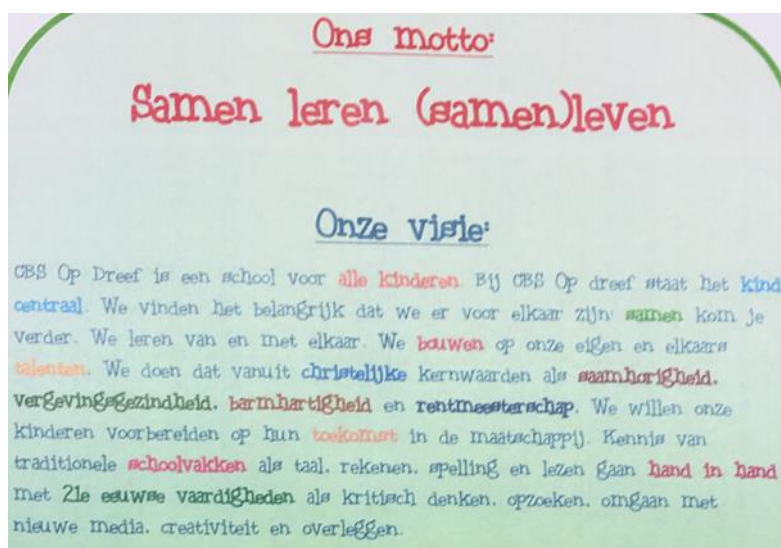 Ons motto:
Samen leren (samen)leven
Onze visie:
CBS Op Dreef is een school voor alle kinderen. Bij CBS Op dreef staat het kind
centraal. We vinden het belangrijk dat we er voor elkaar zijn: samen kom je
verder. We leren van en met elkaar. We bouwen op onze eigen en elkaars
talenten. We doen dat vanuit christelijke kernwaarden als saamhorigheid,
vergevingsgezindheid, barmhartigheid en rentmeesterschap. We willen onze
kinderen voorbereiden op hun toekomst in de maatschappij. Kennis van
traditionele schoolvakken als taal, rekenen, spelling en lezen gaan hand in hand
met 21e eeuwse vaardigheden als kritisch denken, opzoeken, omgaan met
nieuwe media, creativiteit en overleggen.